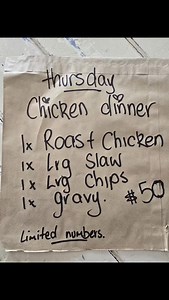 thursday
Chicken dinner
1x Roast Chicken
1x Lrg Slaw
1x Lrg Chips
1x gravy. $50
Limited numbers.